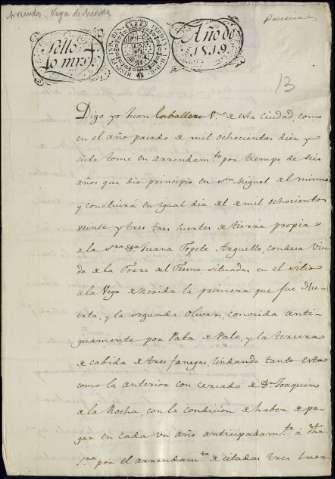 Arriendo Vega de
Sello 4º
40 mrs.
Año de
1819.
13
Digo yo Juan Caballero Vº de esta ciudad, como
en el año pasado de mil ochocientos diez y
siete tome en arrendamtº por tiempo de seis
años que dio principio en Sn Miguel del mismo
y concluirá en igual dia del de mil ochocientos
veinte y tres, tres suertes de tierra propias
de la Juana Topete Arguello condesa Viu
da de la Torre del Fresno situadas en el sitio
de la Vega de Merida la primera que fue Hue
rta, y la segunda Olivar, conocida anti
guamente por Pata de Palo, y la tercera
de cabida de tres fanegas, lindando tanto esta
como la anterior con cercado de Dn Joaquin
de la Rocha, con la condicion de haber de pa
gar en cada un año anticipadamte á
por el arrendamtº de citadas tres suer